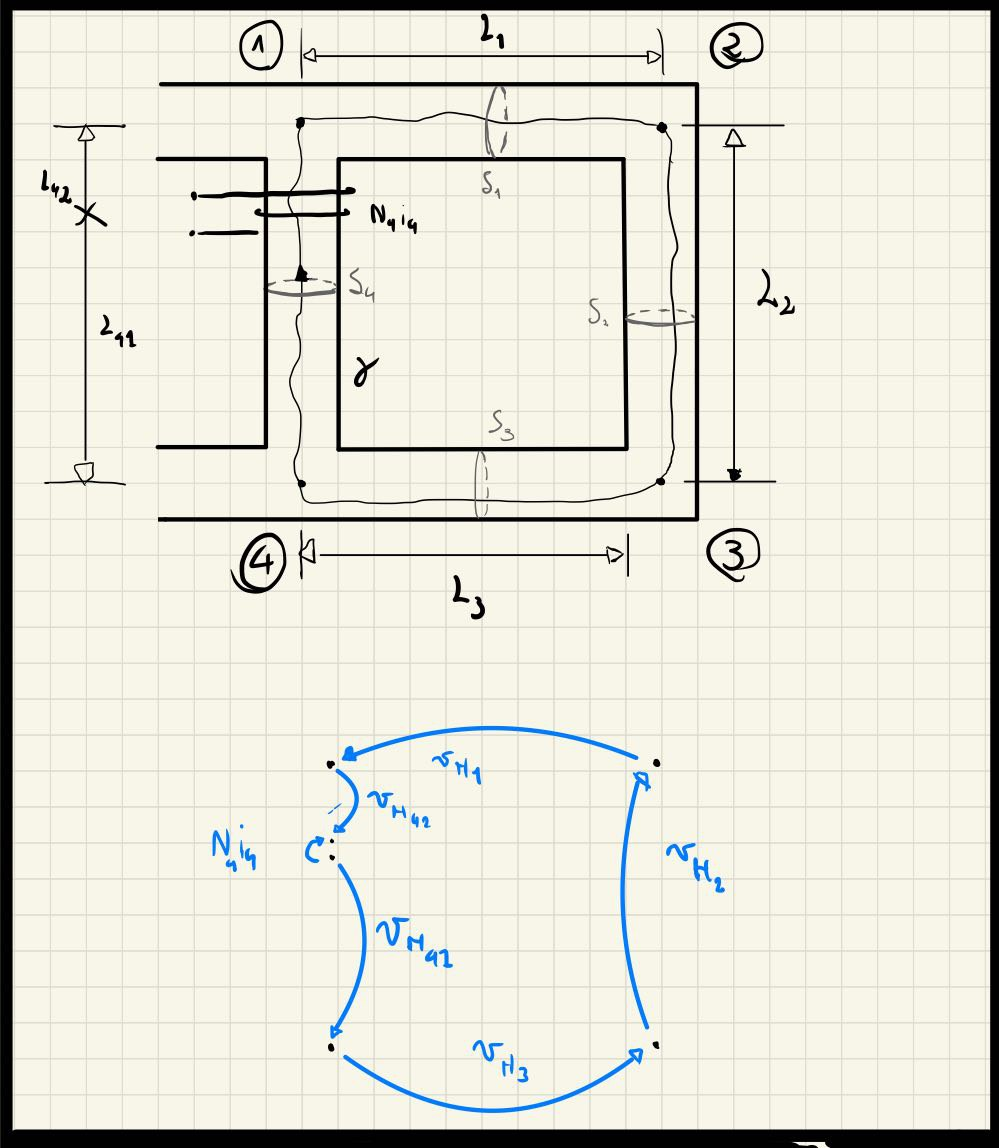 1 L₁ 2
L₄₂
S₁
N₄i₄
S₄
L₂
S₂
L₄₁
γ
S₃
4 3
L₃
v_H₁
v_H₄₂
N₄i₄
v_H₂
v_H₄₁
v_H₃